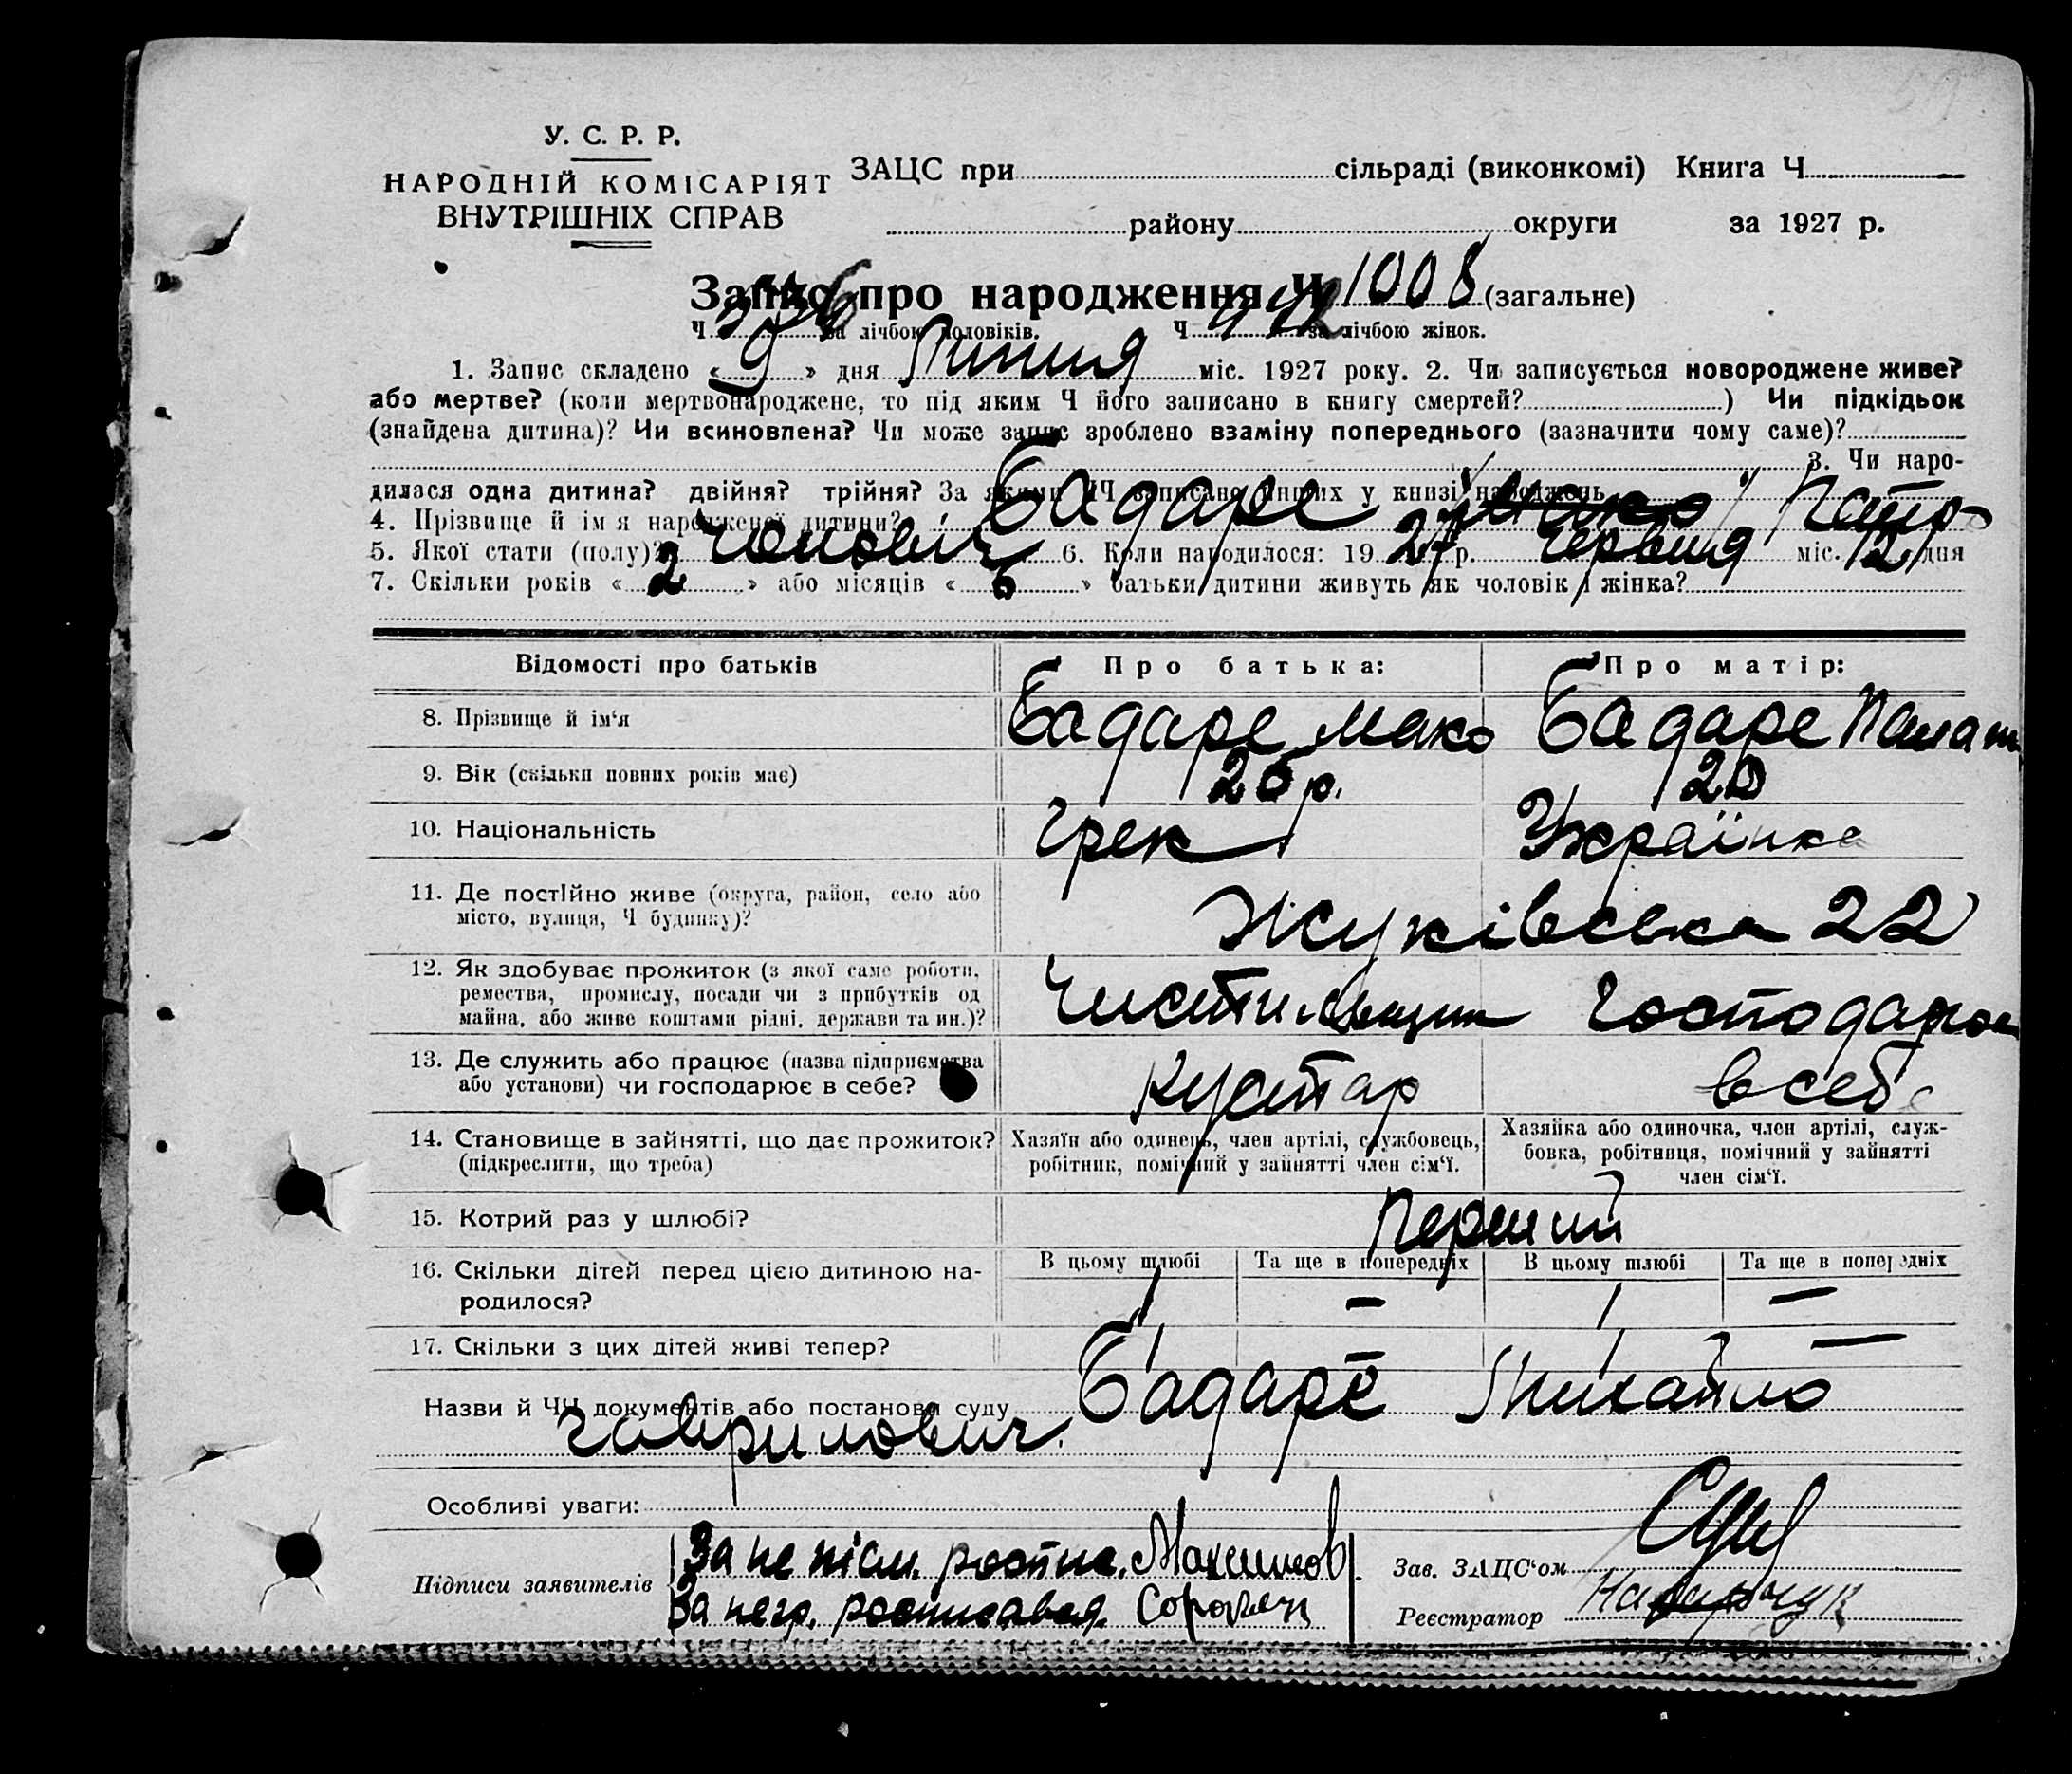 У. С. Р. Р.
НАРОДНІЙ КОМІСАРІЯТ
ВНУТРІШНІХ СПРАВ
ЗАЦС при сільраді (виконкомі) Книга Ч
району округи за 1927 р.
Запис про народження Ч 1008 (загальне)
Ч за лічбою чоловіків. Ч за лічбою жінок.
1. Запис складено « 9 » дня Липня міс. 1927 року. 2. Чи записується новороджене живе?
або мертве? (коли мертвонароджене, то під яким Ч його записано в книгу смертей? ) Чи підкідьок
(знайдена дитина)? Чи всиновлена? Чи може запис зроблено взаміну попереднього (зазначити чому саме)?
3. Чи наро-
дилася одна дитина? двійня? трійня? За якими ЧЧ записано инших у книзі народжень
4. Прізвище й ім'я народженої дитини? Бадаре Петро
5. Якої стати (полу)? Чоловіч 6. Коли народилося: 19 27 р. Червня міс. 12 дня
7. Скільки років « 2 » або місяців « » батьки дитини живуть як чоловік і жінка?
Відомості про батьків Про батька: Про матір:
8. Прізвище й ім'я Бадаре Мако Бадаре
9. Вік (скільки повних років має) р. 20
10. Національність Грек Українка
11. Де постійно живе (округа, район, село або
місто, вулиця, Ч будинку)? Жуківська 22
12. Як здобуває прожиток (з якої саме роботи,
ремества, промислу, посади чи з прибутків од
майна, або живе коштами рідні, держави та ин.)? Чистильщик
13. Де служить або працює (назва підприємства
або установи) чи господарює в себе? Кустар в себе
14. Становище в зайнятті, що дає прожиток?
(підкреслити, що треба)
Хазяїн або одинець, член артілі, службовець,
робітник, помічний у зайнятті член сім'ї.
Хазяйка або одиночка, член артілі, служ-
бовка, робітниця, помічний у зайнятті
член сім'ї.
15. Котрий раз у шлюбі? Перший
16. Скільки дітей перед цією дитиною на-
родилося?
В цьому шлюбі Та ще в попередніх В цьому шлюбі Та ще в попередніх
1 — 1 —
17. Скільки з цих дітей живі тепер? 1 — 1 —
Назви й ЧЧ документів або постанови суду Бадаре Михайло
Гаврилович.
Особливі уваги:
Підписи заявителів
За не пісм. роспис. Максимов
За негр. росписався
Зав. ЗАЦС'ом
Реєстратор